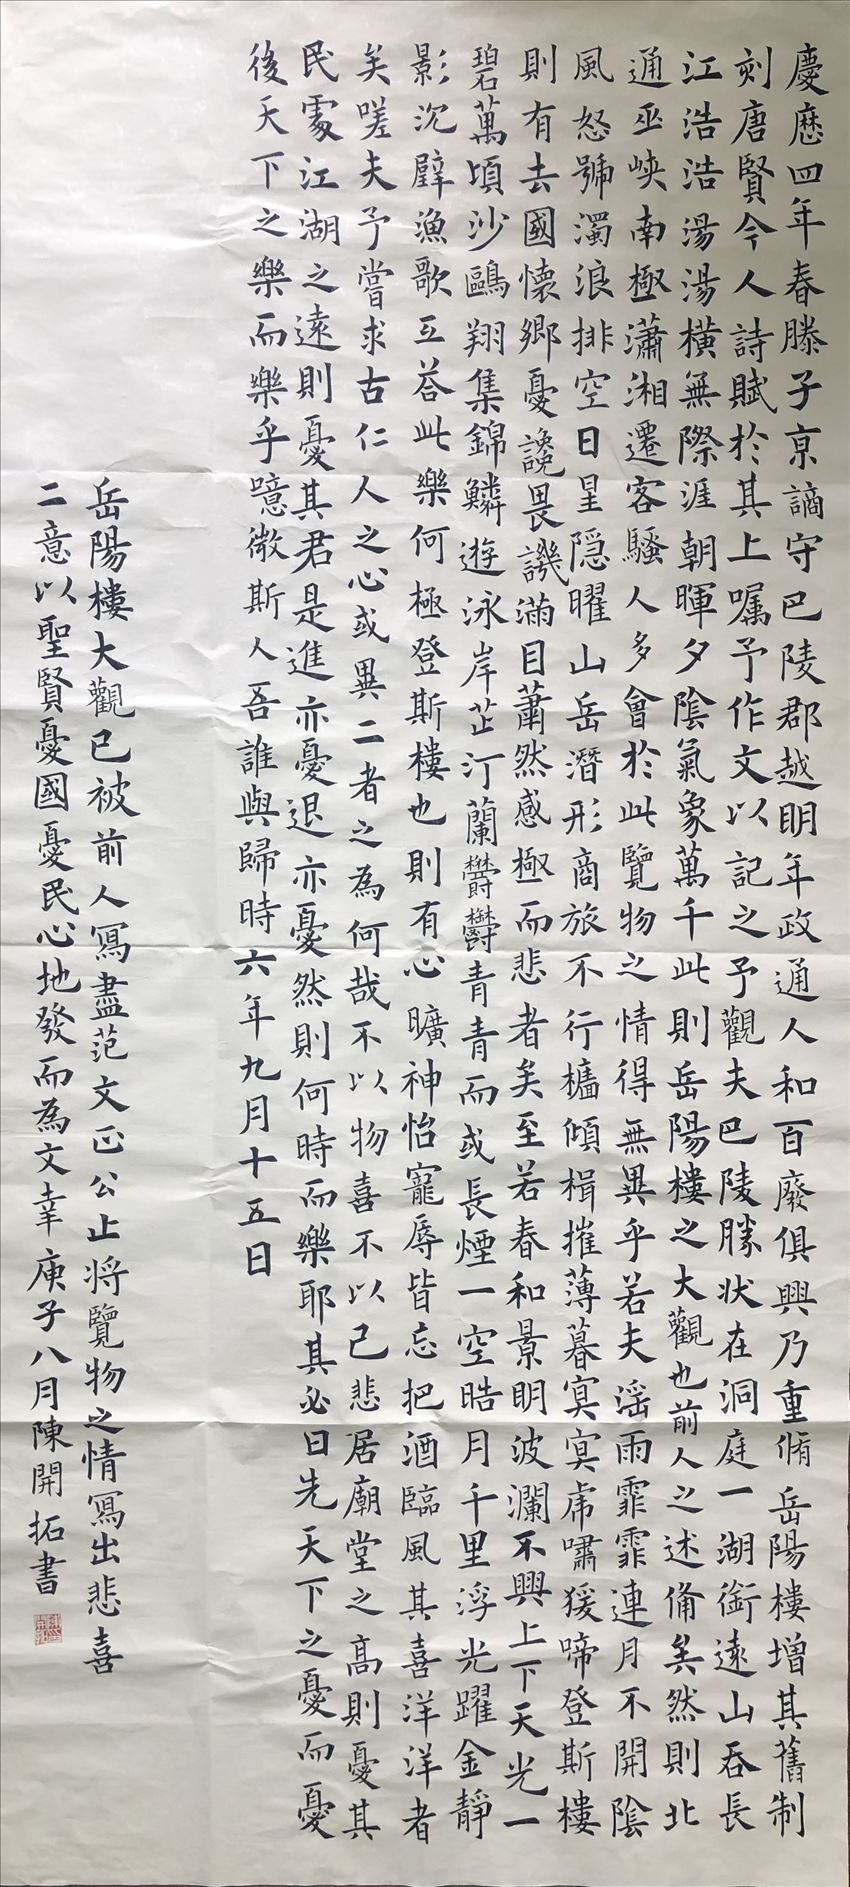 慶歷四年春滕子京謫守巴陵郡越明年政通人和百廢俱興乃重脩岳陽樓增其舊制
刻唐賢今人詩賦於其上嘱予作文以記之予觀夫巴陵勝状在洞庭一湖銜遠山吞長
江浩浩湯湯橫無際涯朝暉夕陰氣象萬千此則岳陽樓之大觀也前人之述備矣然則北
通巫峡南極瀟湘遷客騷人多會於此覽物之情得無異乎若夫淫雨霏霏連月不開陰
風怒號濁浪排空日星隐曜山岳潛形商旅不行檣傾楫摧薄暮冥冥虎嘯猨啼登斯樓
則有去國懷鄉憂讒畏譏滿目蕭然感極而悲者矣至若春和景明波瀾不興上下天光一
碧萬頃沙鷗翔集錦鱗遊泳岸芷汀蘭欝欝青青而或長煙一空晧月千里浮光躍金靜
影沉璧漁歌互荅此樂何極登斯樓也則有心曠神怡寵辱皆忘把酒臨風其喜洋洋者
矣嗟夫予嘗求古仁人之心或異二者之為何哉不以物喜不以己悲居廟堂之高則憂其
民處江湖之遠則憂其君是進亦憂退亦憂然則何時而樂耶其必曰先天下之憂而憂
後天下之樂而樂乎噫微斯人吾誰與歸時六年九月十五日
岳陽樓大觀已被前人寫盡范文正公止将覽物之情寫出悲喜
二意以聖賢憂國憂民心地發而為文章庚子八月陳開拓書